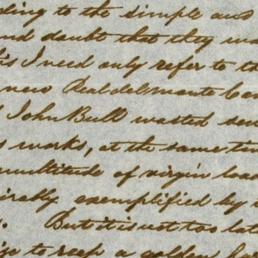 ding to the simple and
nd doubt that they
is I need only refer to th
new Real del Monte Co
John Bull wasted
works, at the same tim
multitude of virgin
exemplified by
. But it is not too lat
to reap a golden